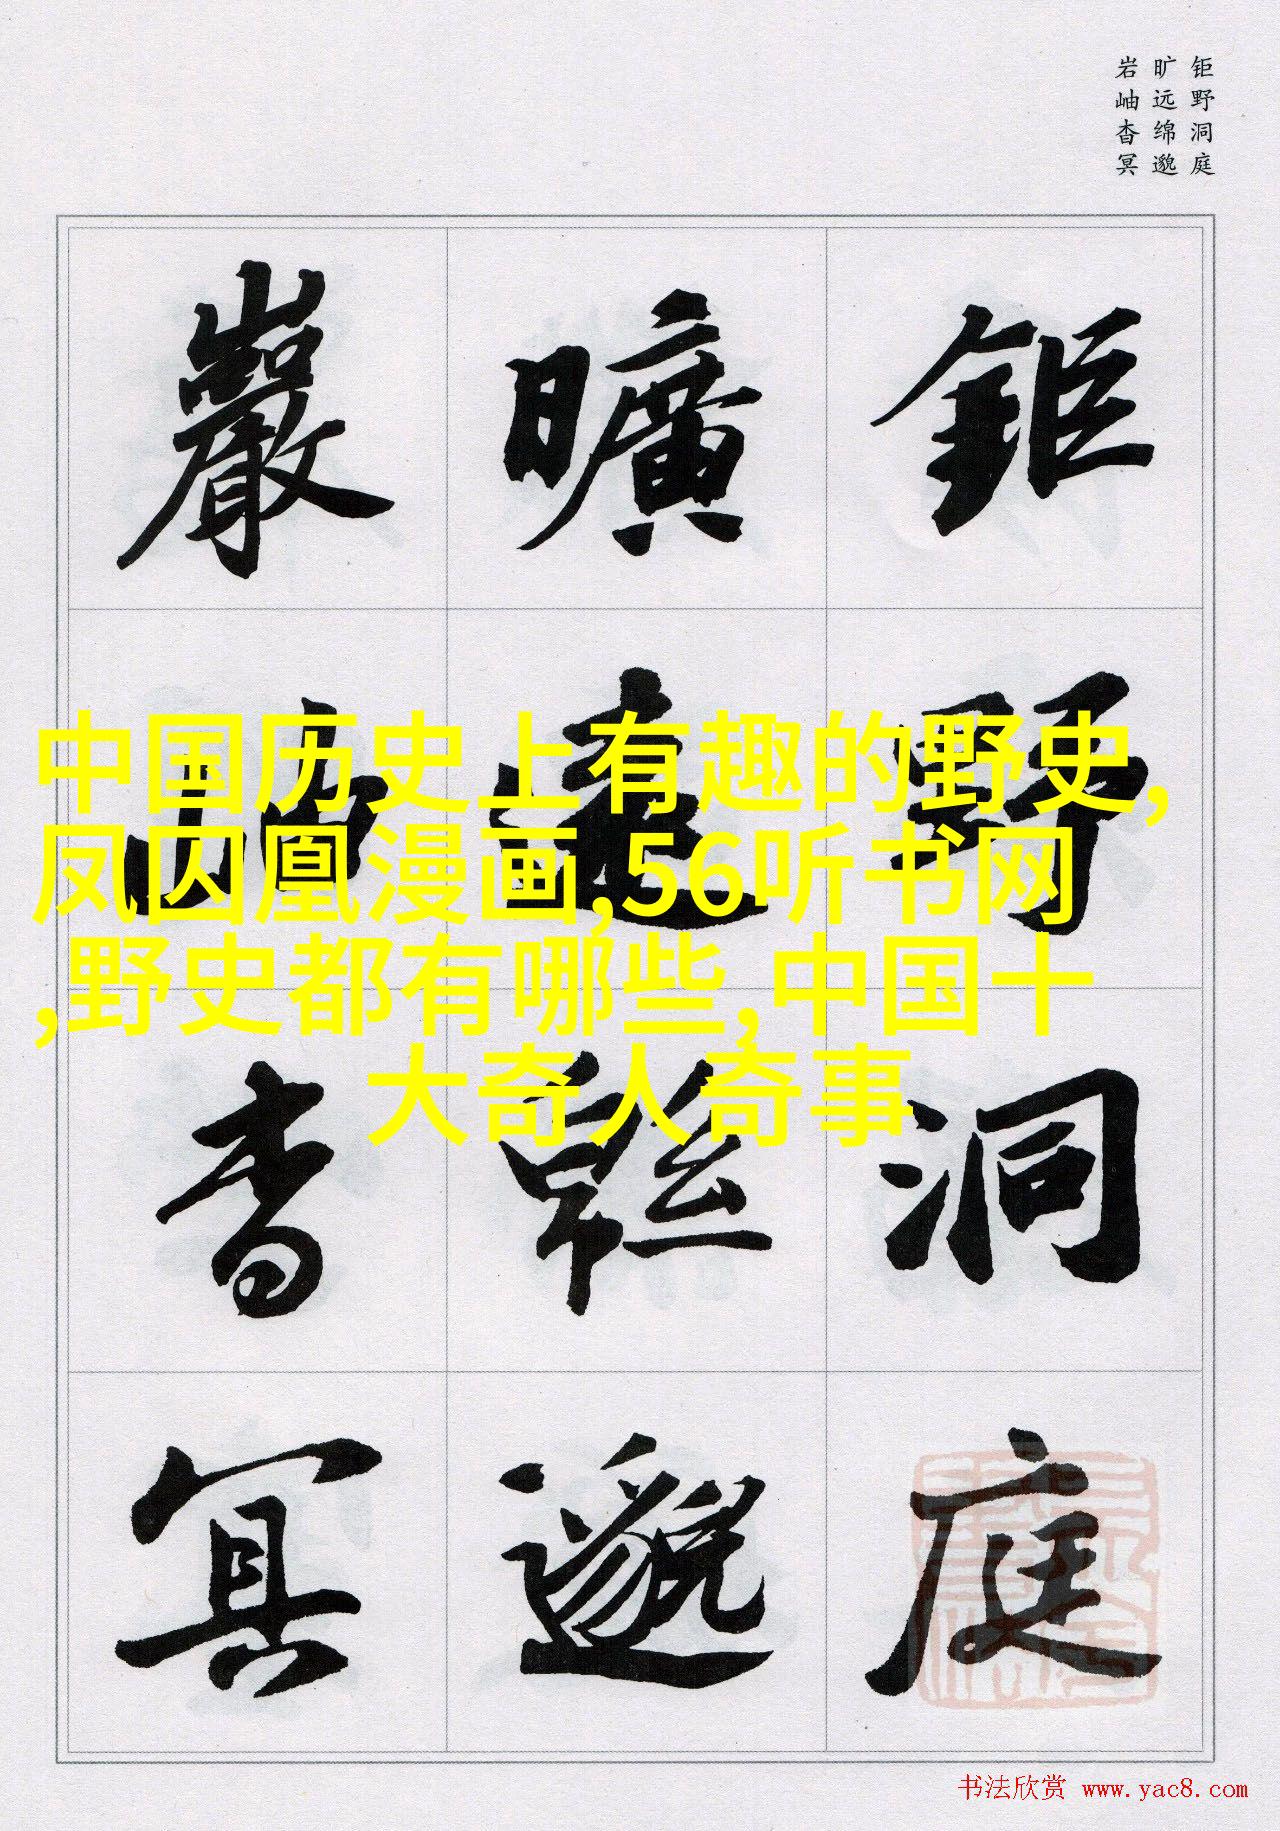 钜野洞庭
旷远绵邈
岩岫杳冥
鉅野洞庭
曠遠緜邈
巖岫杳冥
中国历史上有趣的野史,
凤囚凰漫画,56听书网
,野史都有哪些,中国十
大奇人奇事
书法欣赏 www.yac8.com